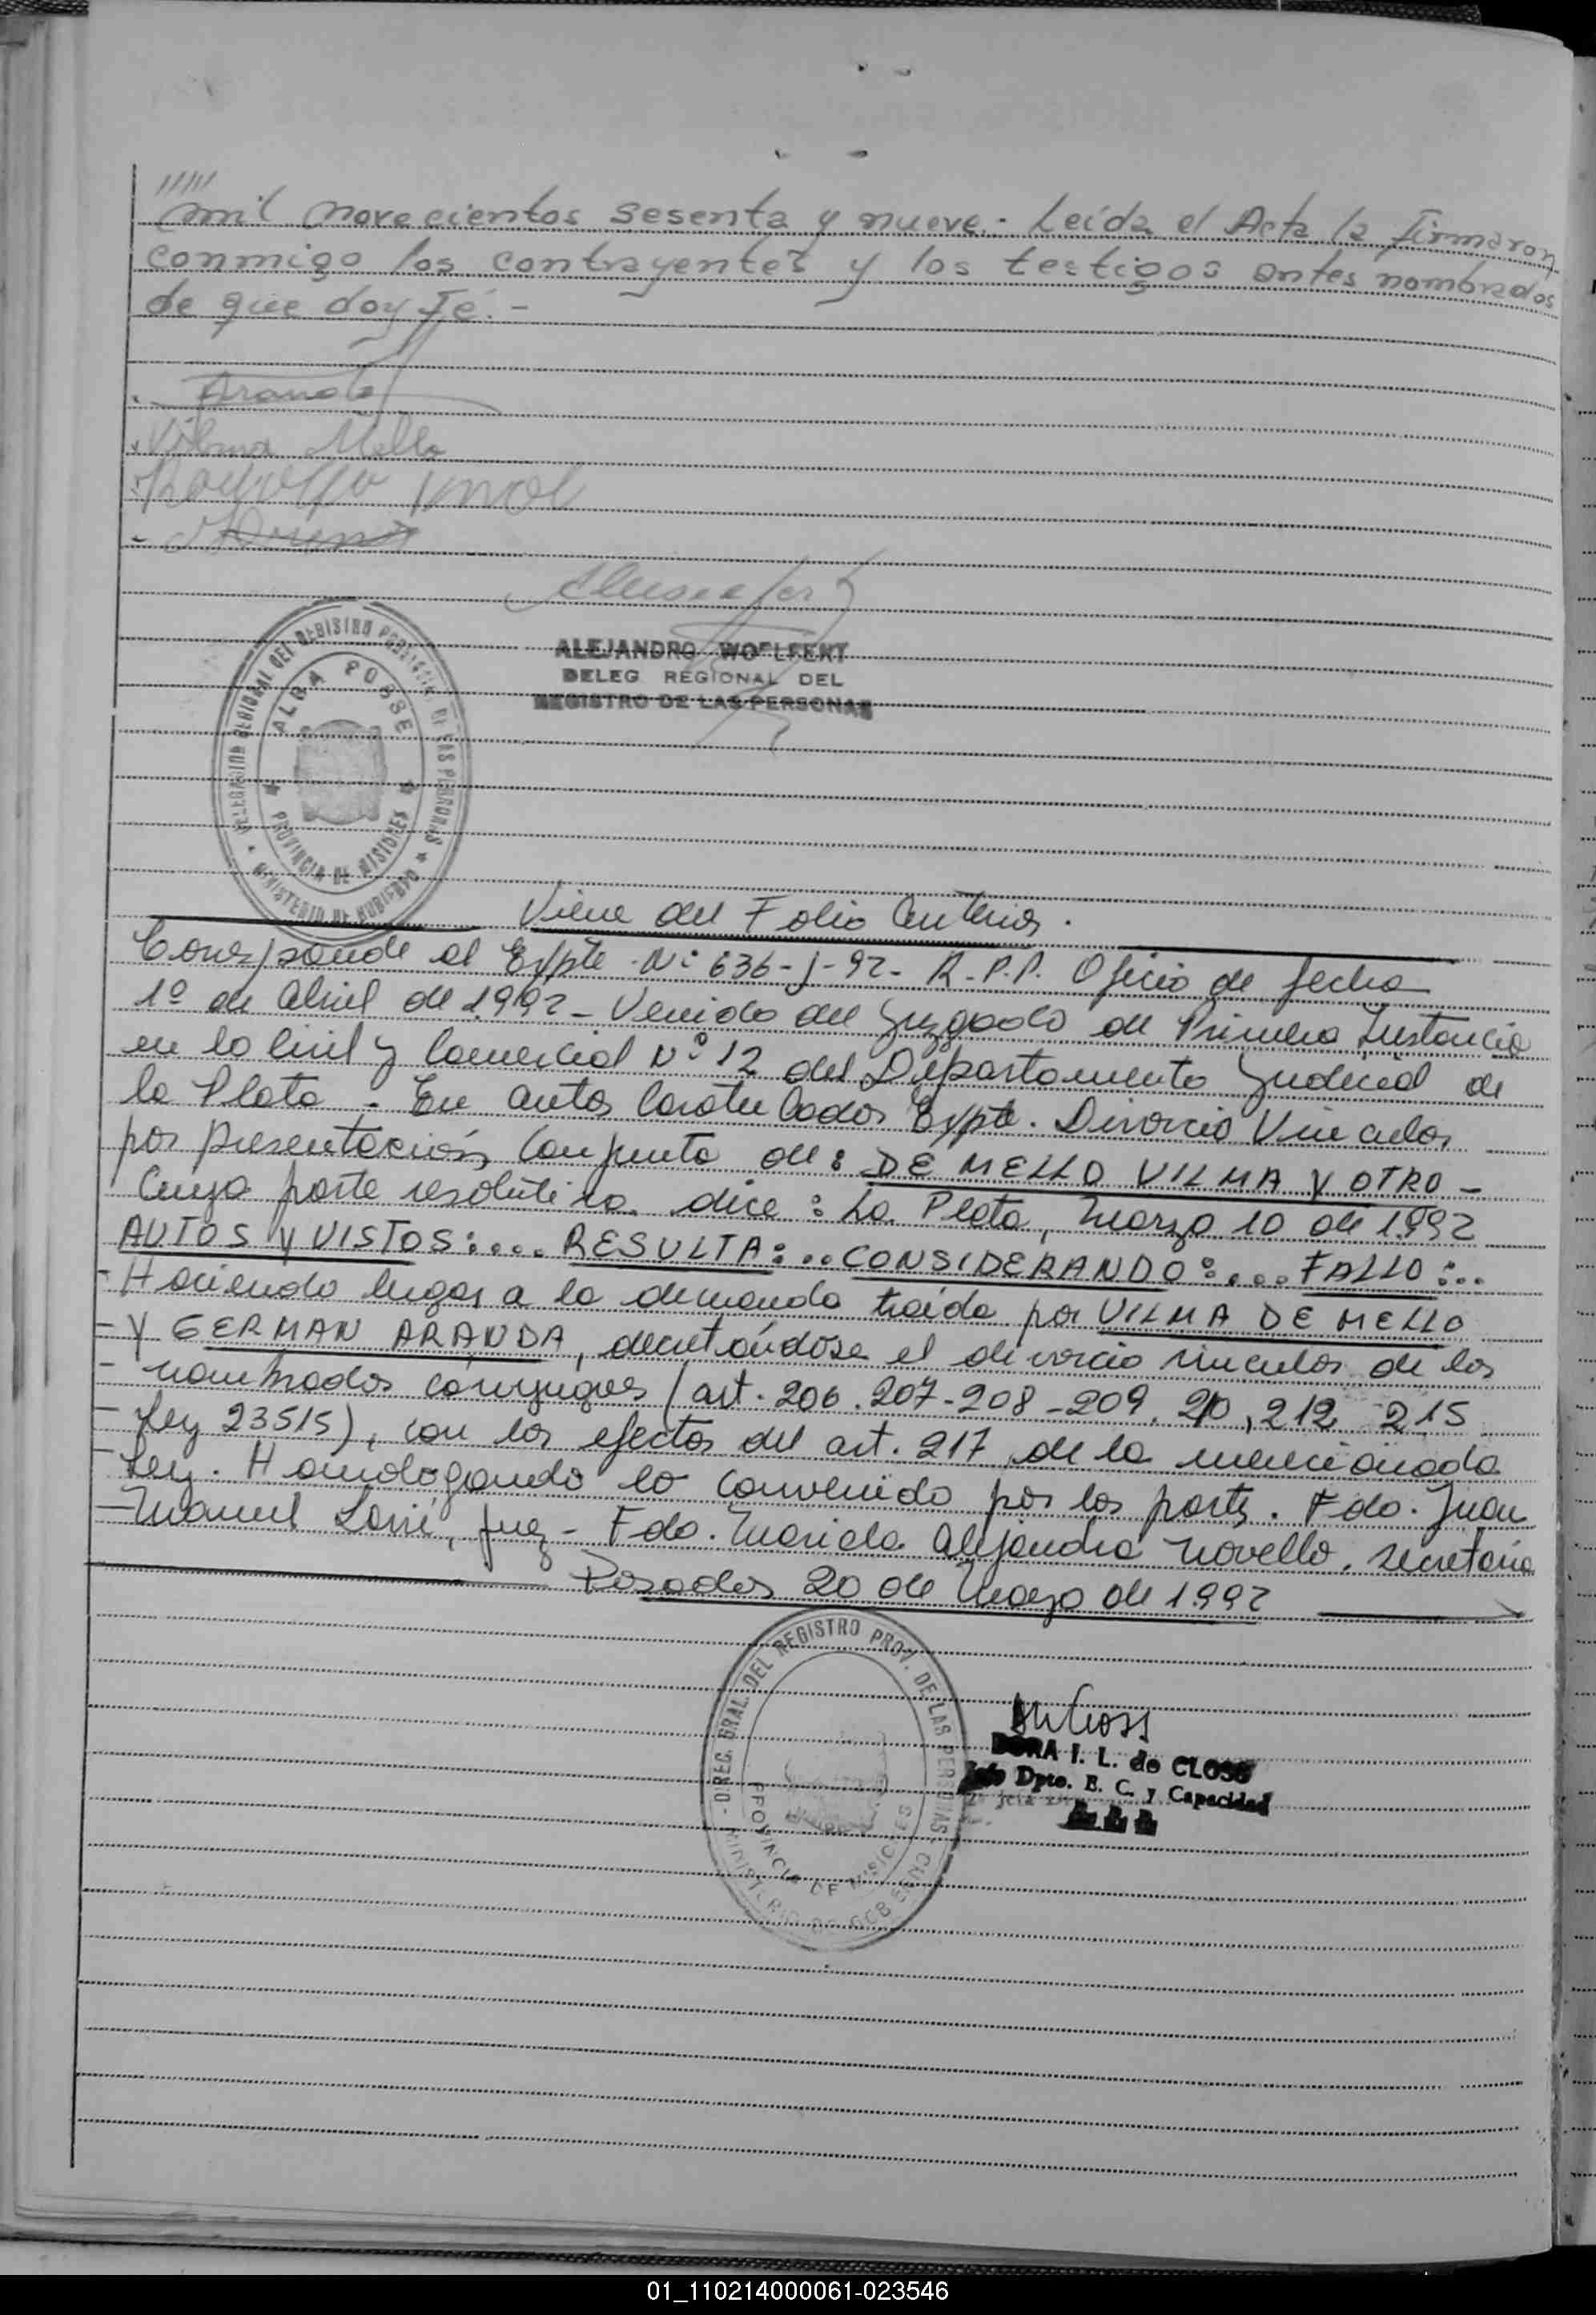 /////
mil novecientos sesenta y nueve.- Leída el Acta la firmaron
conmigo los contrayentes y los testigos antes nombrados
de que doy fé.-
Aranda
Vilma Mello
ALEJANDRO WOELFERT
DELEG REGIONAL DEL
REGISTRO DE LAS PERSONAS
DELEGACION REGIONAL DEL REGISTRO PROVINCIAL DE LAS PERSONAS
ALBA POSSE
PROVINCIA DE MISIONES
MINISTERIO DE GOBIERNO
Viene del Folio Anterior.
Corresponde al Expte Nº 636-J-92- R.P.P. Oficio de fecha
1º de Abril de 1992 - Venido del Juzgado de Primera Instancia
en lo Civil y Comercial Nº 12 del Departamento Judicial de
la Plata. En autos Caratulados Expte. Divorcio Vincular
por presentación Conjunta de: DE MELLO VILMA Y OTRO -
Cuya parte resolutiva dice: La Plata, Marzo 10 de 1992
AUTOS Y VISTOS:.... RESULTA:.. CONSIDERANDO:.... FALLO:..
- Haciendo lugar a la demanda traída por VILMA DE MELLO
- Y GERMAN ARANDA, decretándose el divorcio vincular de los
- nombrados cónyuges (art. 206. 207-208-209. 210, 212 215
- Ley 23515), con los efectos del art. 217 de la mencionada
- Ley. Homologando lo convenido por las parts. Fdo. Juan
- Manuel Lavié, Juez - Fdo. Mariela Alejandra Novello. secretaria
Posadas 20 de Marzo de 1992
DIREC. GRAL. DEL REGISTRO PROV. DE LAS PERSONAS
PROVINCIA DE MISIONES
MINISTERIO DE GOBIERNO
DORA I. L. de CLOSS
Jefe Dpto. E. C. y Capacidad
01_110214000061-023546